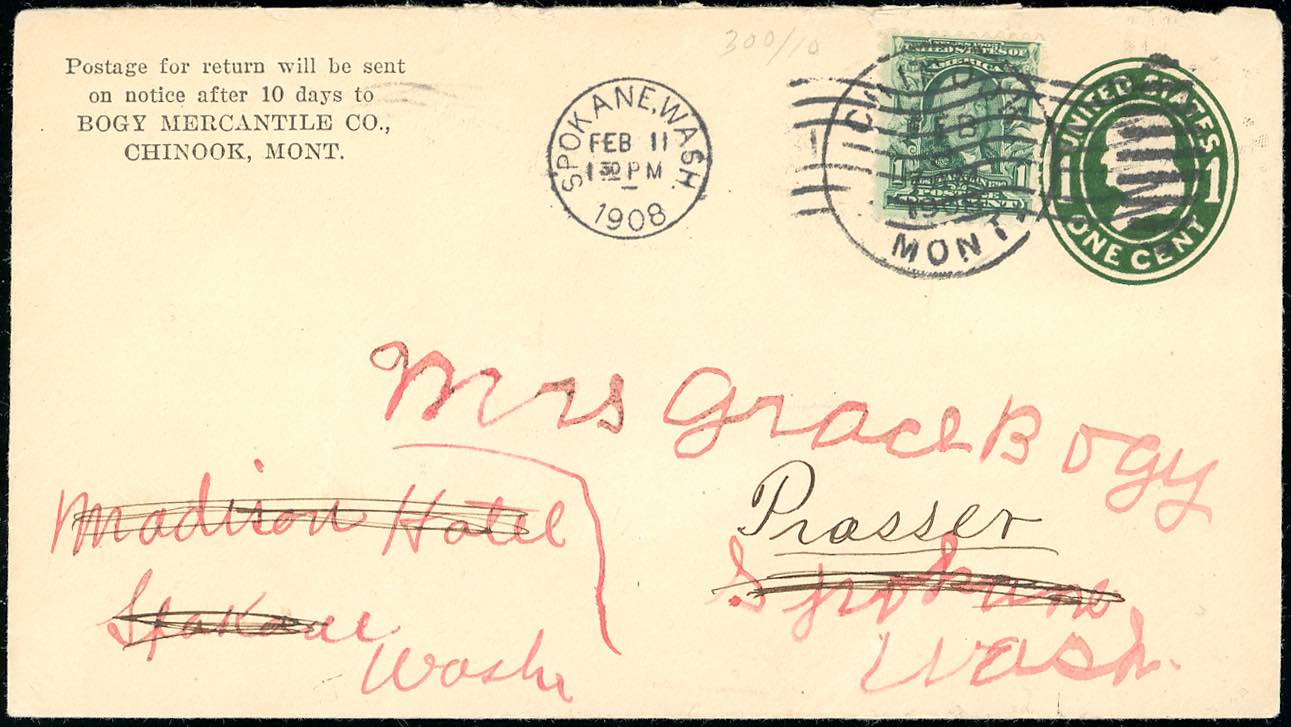 300/10
Postage for return will be sent
on notice after 10 days to
BOGY MERCANTILE CO.,
CHINOOK, MONT.
SPOKANE, WASH.
FEB 11
1 30 PM
1908
FEB
MONT.
UNITED STATES OF
AMERICA
1 1
POSTAGE
UNITED STATES
1 1
ONE CENT
Mrs Grace Bogy
Prosser
Spokane
Wash.
Madison Hotel
Spokane
Wash